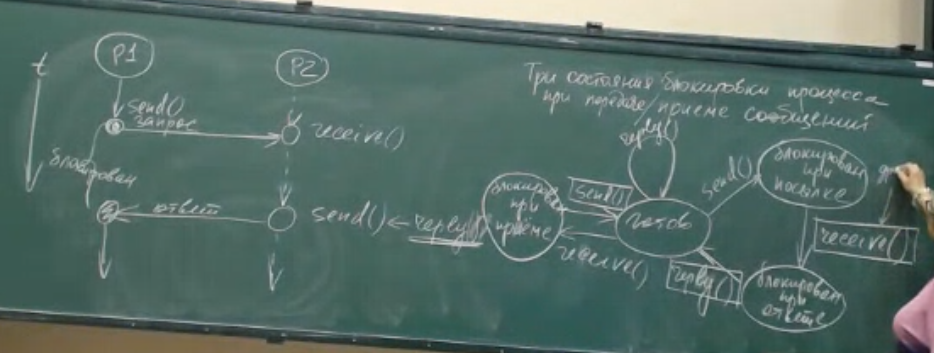 t
P1
P2
send()
запрос
receive()
блокирован
ответ
send() ← reply()
Три состояния блокировки процесса
при передаче/приеме сообщений
reply()
блокирован
при
приёме
send()
готов
receive()
send()
блокирован
при
посылке
receive()
reply()
блокирован
при
ответе